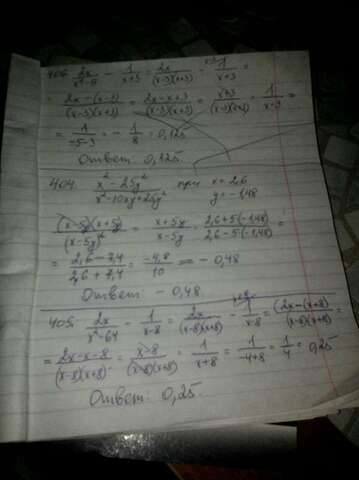 406 2x/x²-9 - 1/x+3 = 2x/(x-3)(x+3) - 1/x+3 =
= 2x-(x-3)/(x-3)(x+3) = 2x-x+3/(x-3)(x+3) = x+3/(x-3)(x+3) = 1/x-3 =
= 1/-5-3 = -1/8 = 0,125
Ответ: 0,125
404. x²-25y²/x²-10xy+25y² при x=2,6 y=-1,48
(x-5y)(x+5y)/(x-5y)² = x+5y/x-5y = 2,6+5·(-1,48)/2,6-5·(-1,48) =
= 2,6-7,4/2,6+7,4 = -4,8/10 = -0,48
Ответ: -0,48.
405. 2x/x²-64 - 1/x-8 = 2x/(x-8)(x+8) - 1/x-8 = 2x-(x+8)/(x-8)(x+8) =
= 2x-x-8/(x-8)(x+8) = x-8/(x-8)(x+8) = 1/x+8 = 1/-4+8 = 1/4 = 0,25
Ответ: 0,25.